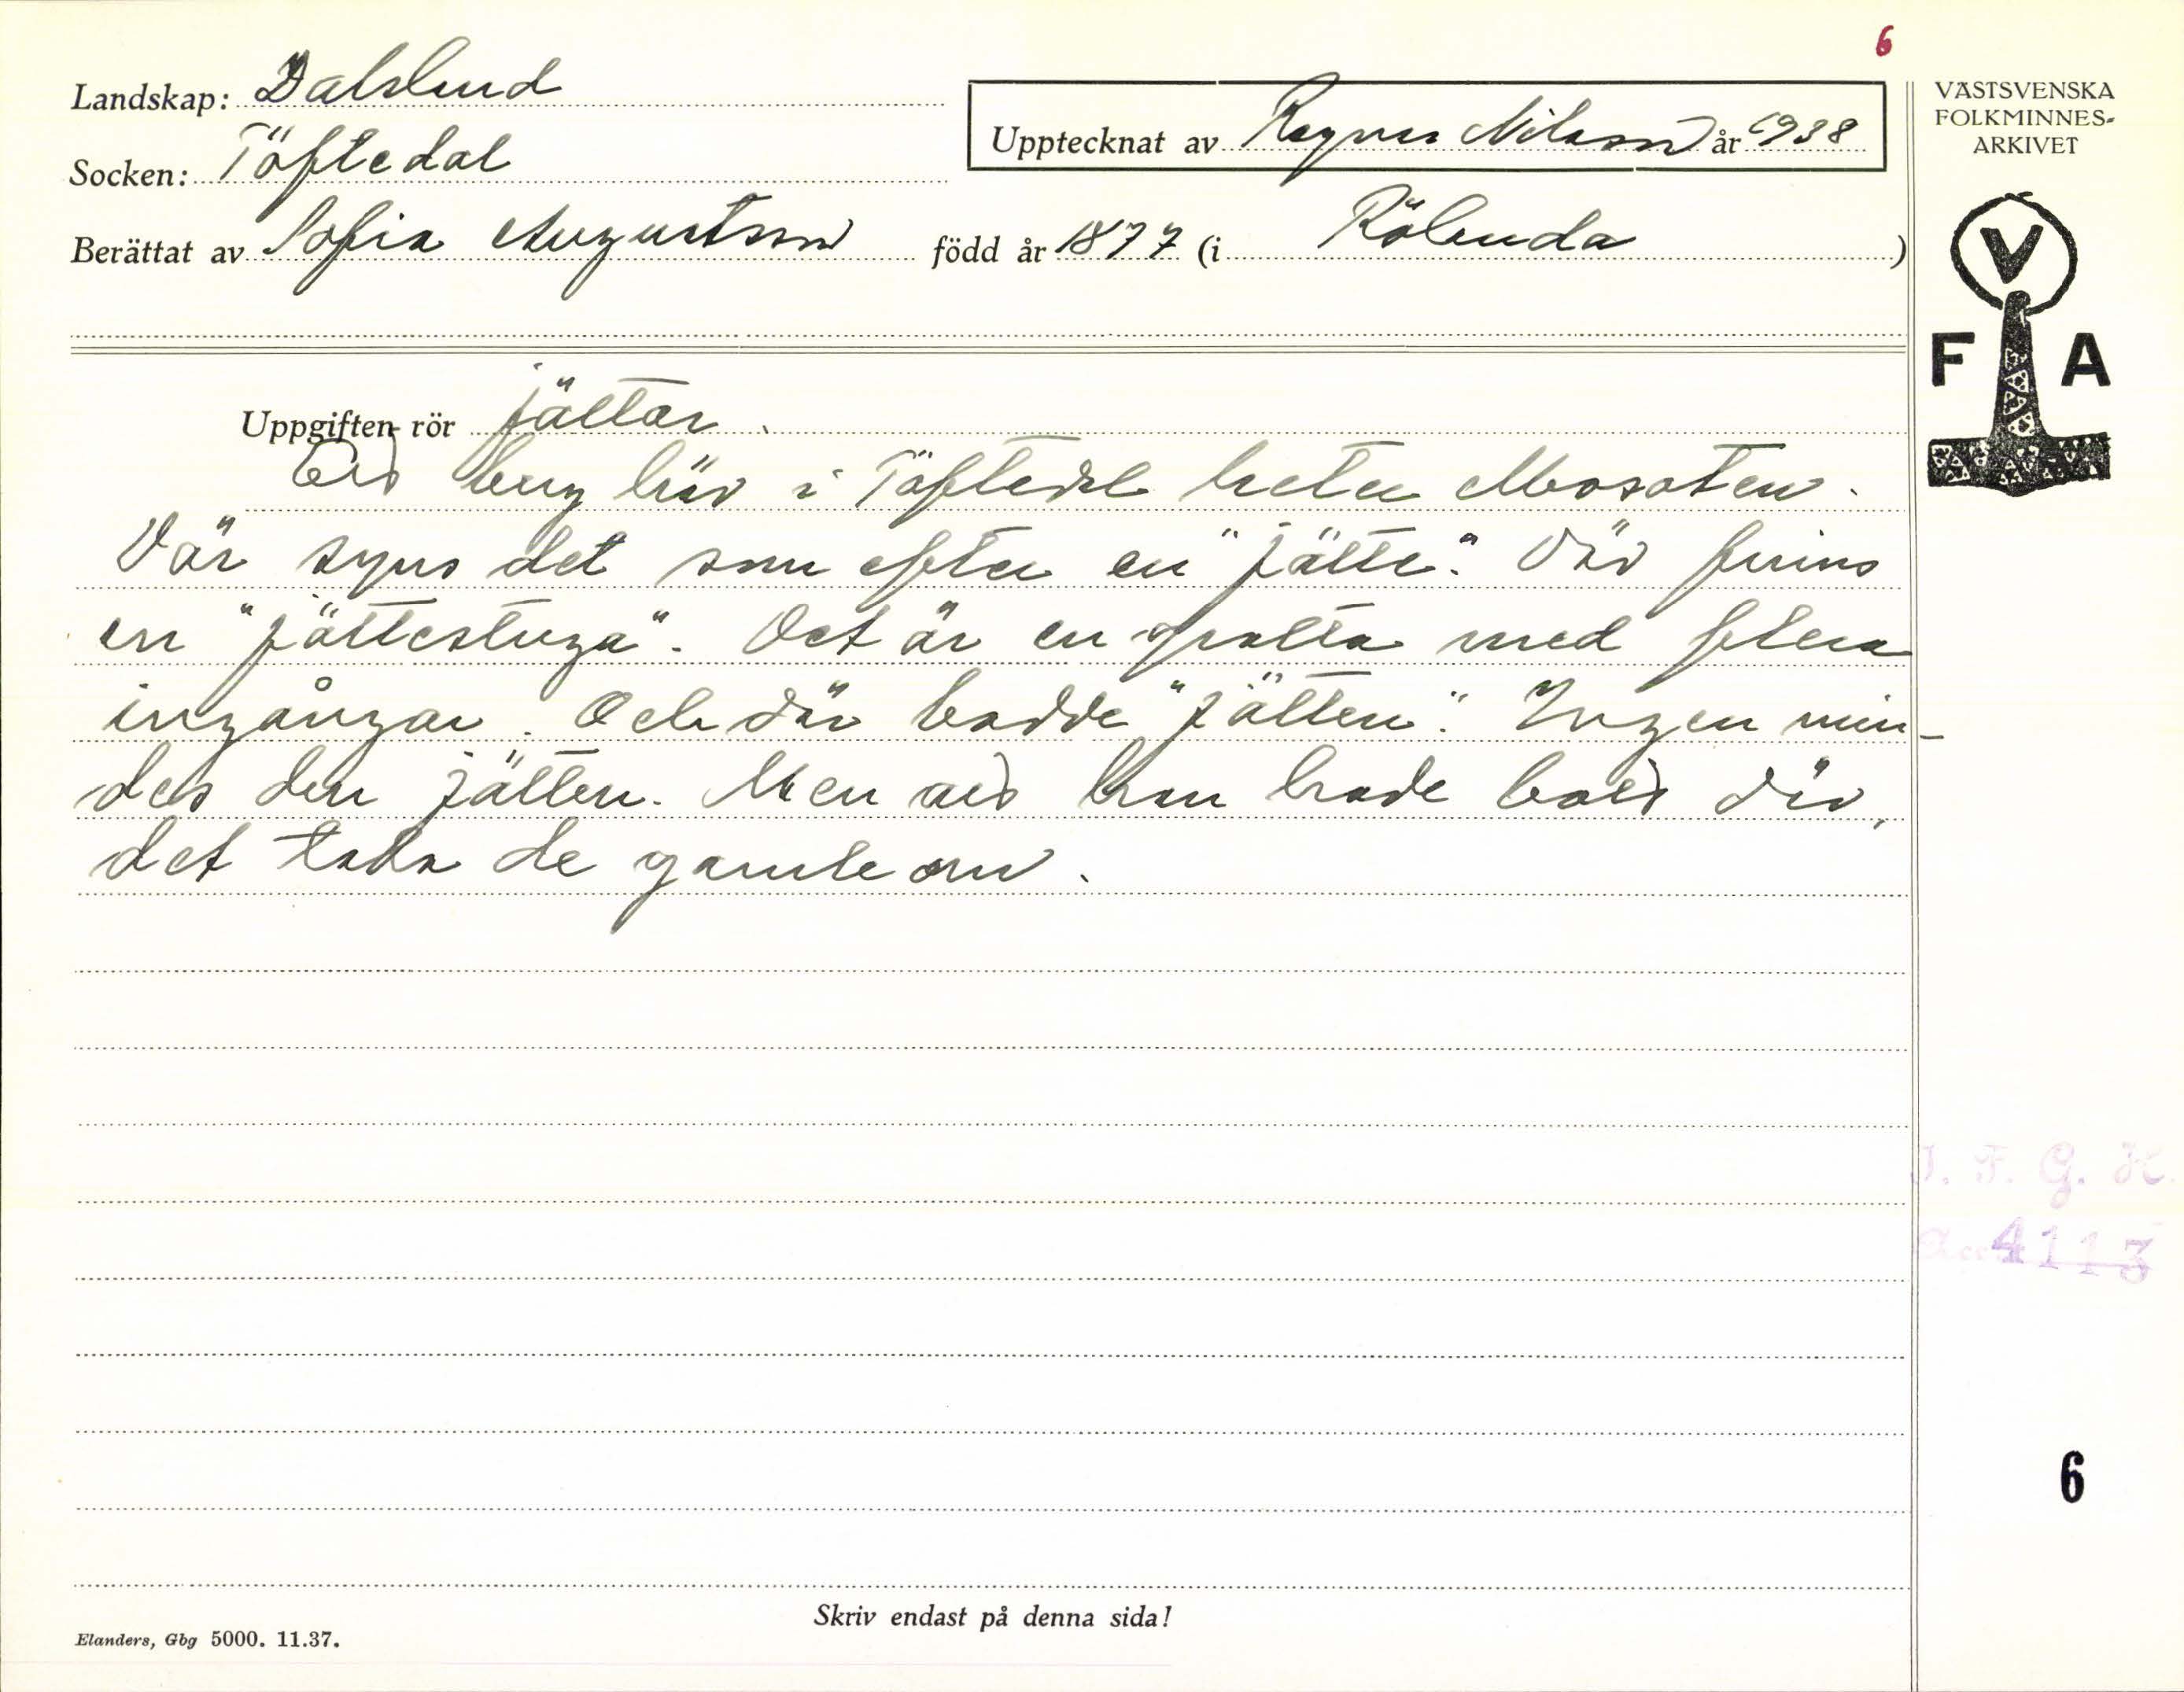 6
Landskap: Dalsland
Upptecknat av Ragnar Nilsson år 1938
VÄSTSVENSKA
FOLKMINNES-
ARKIVET
Socken: Töftedal
Berättat av Sofia Augustsson född år 1877 (i Rölanda)
V
F A
Uppgiften rör jättar.
Ett berg här i Töftedal heter
Där syns det som efter en "jätte". Där finns
en "jättestuga". Det är en grotta med flera
ingångar. Och där bodde "jätten". Ingen min-
des den jätten. Men att han hade bott där,
det tala de gamle om.
I. F. G. H.
Acc 4113
6
Skriv endast på denna sida!
Elanders, Gbg 5000. 11.37.